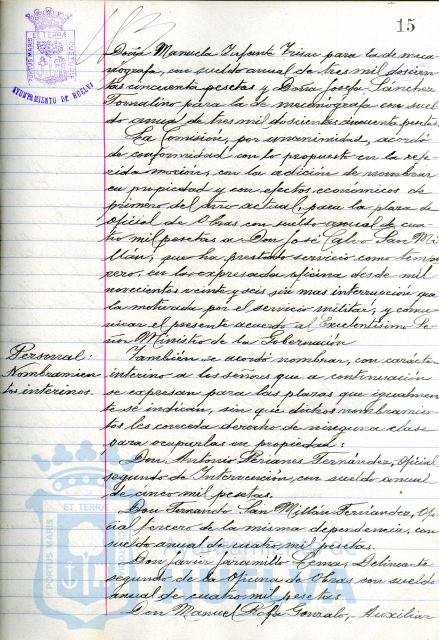 15
PORTUS MARIS ET TERRÆ CUSTODIA
AYUNTAMIENTO DE HUELVA
Doña Manuela Infante Trisac para la de meca-
nógrafa, con sueldo anual de tres mil doscien-
tas cincuenta pesetas y Doña Josefa Sánchez
Tornalino para la de mecanógrafa con suel-
do anual de tres mil doscientas cincuenta pesetas.
La Comisión, por unanimidad, acordó
de conformidad con lo propuesto en la refe-
rida moción, con la adición de nombrar
en propiedad y con efectos económicos de
primero del año actual, para la plaza de
Oficial de Obras con sueldo anual de cua-
tro mil pesetas a Don José Calvo San Mi-
llán, que ha prestado servicio como tempo-
rero, en la expresada oficina desde mil
novecientos veinte y seis sin mas interrupción que
la motivada por el servicio militar, y comu-
nicar el presente acuerdo al Excelentísimo Se-
ñor Ministro de la Gobernación
Personal:
Nombramien-
tos interinos.
También se acordó nombrar, con carácter
interino a los señores que a continuación
se expresan para las plazas que igualmen-
te se indican, sin que dichos nombramien-
tos les conceda derecho de ninguna clase
para ocuparlas en propiedad:
Don Antonio Perianes Fernández, Oficial
segundo de Intervención, con sueldo anual
de cinco mil pesetas.
Don Fernando San Millán Fernández, Ofi-
cial tercero de la misma dependencia, con
sueldo anual de cuatro mil pesetas.
Don Javier Jaramillo Lema, Delineante
segundo de la Oficina de Obras con sueldo
anual de cuatro mil pesetas
Don Manuel Gonzalo, Auxiliar
PORTUS MARIS ET TERRÆ
Ayuntamiento de
HUELVA